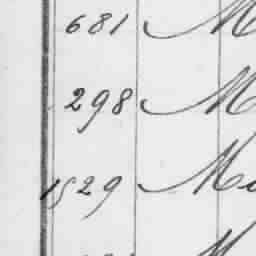 681 M
298 M
1529 M